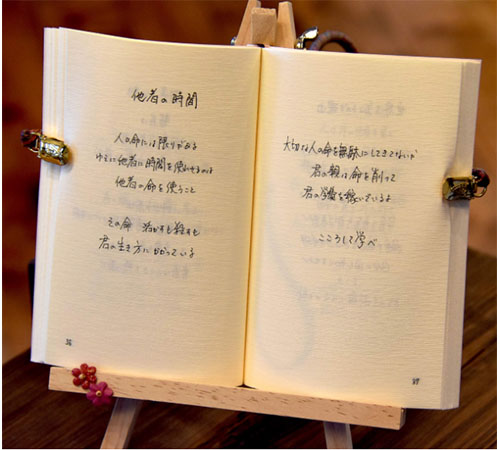 他者の時間
人の命には限りがある
ゆえに他者に時間を使わせるのは
他者の命を使うこと
その命 活かすも殺すも
君の生き方にかかっている
36
大切な人の命を無駄にしてきてないか
君の親は命を削って
君の学費を稼いでいるよ
こころして学べ
37